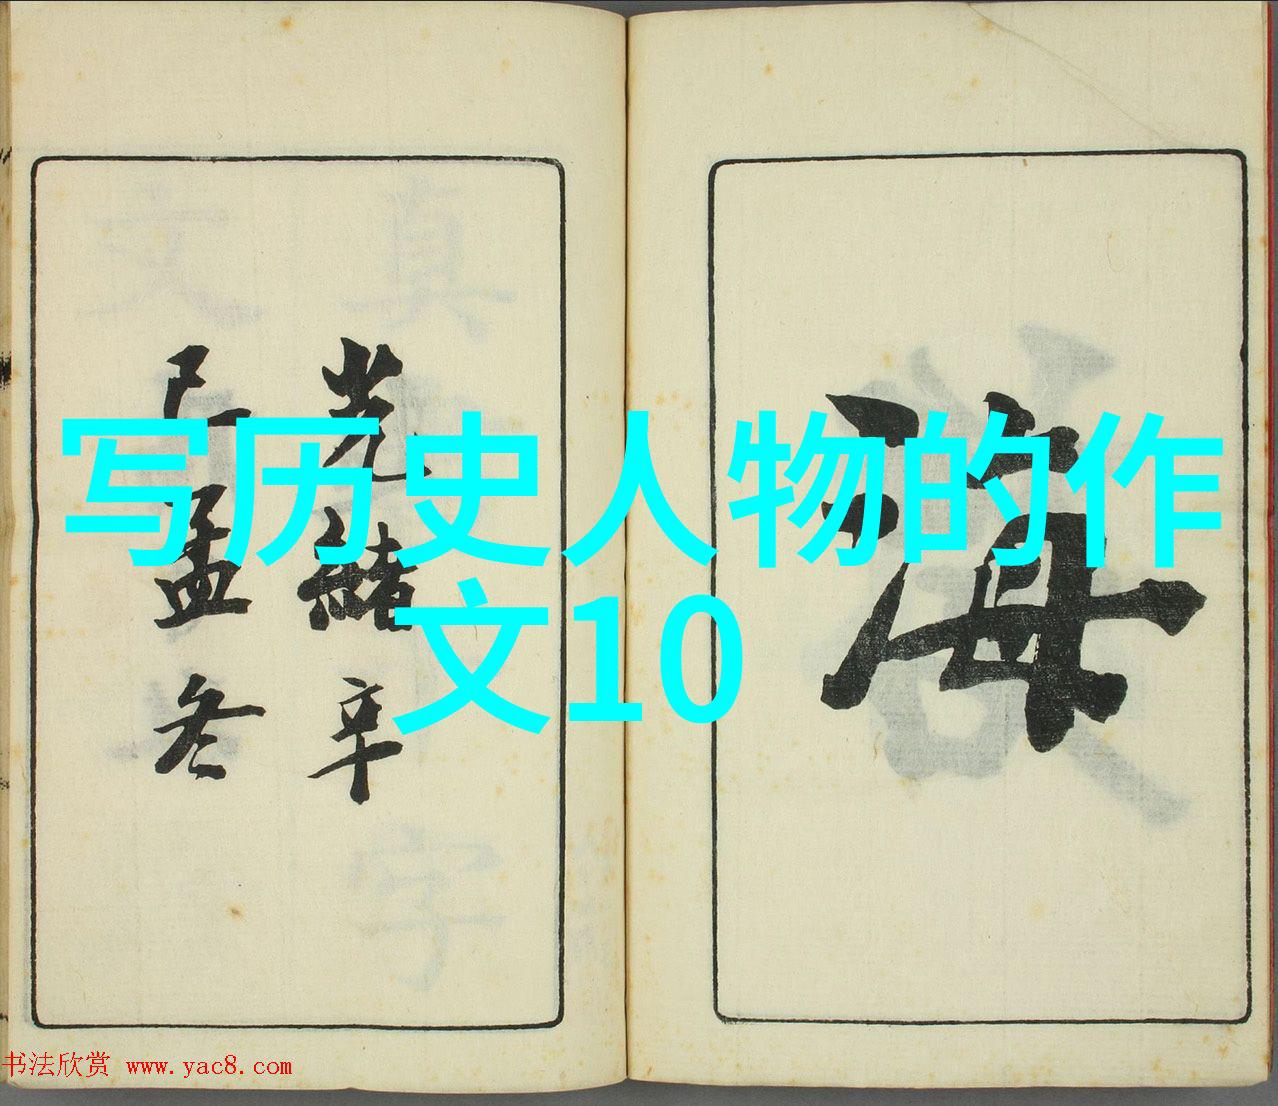 写历史人物的作
文10
海
光緒辛
巳孟冬
书法欣赏 www.yac8.com